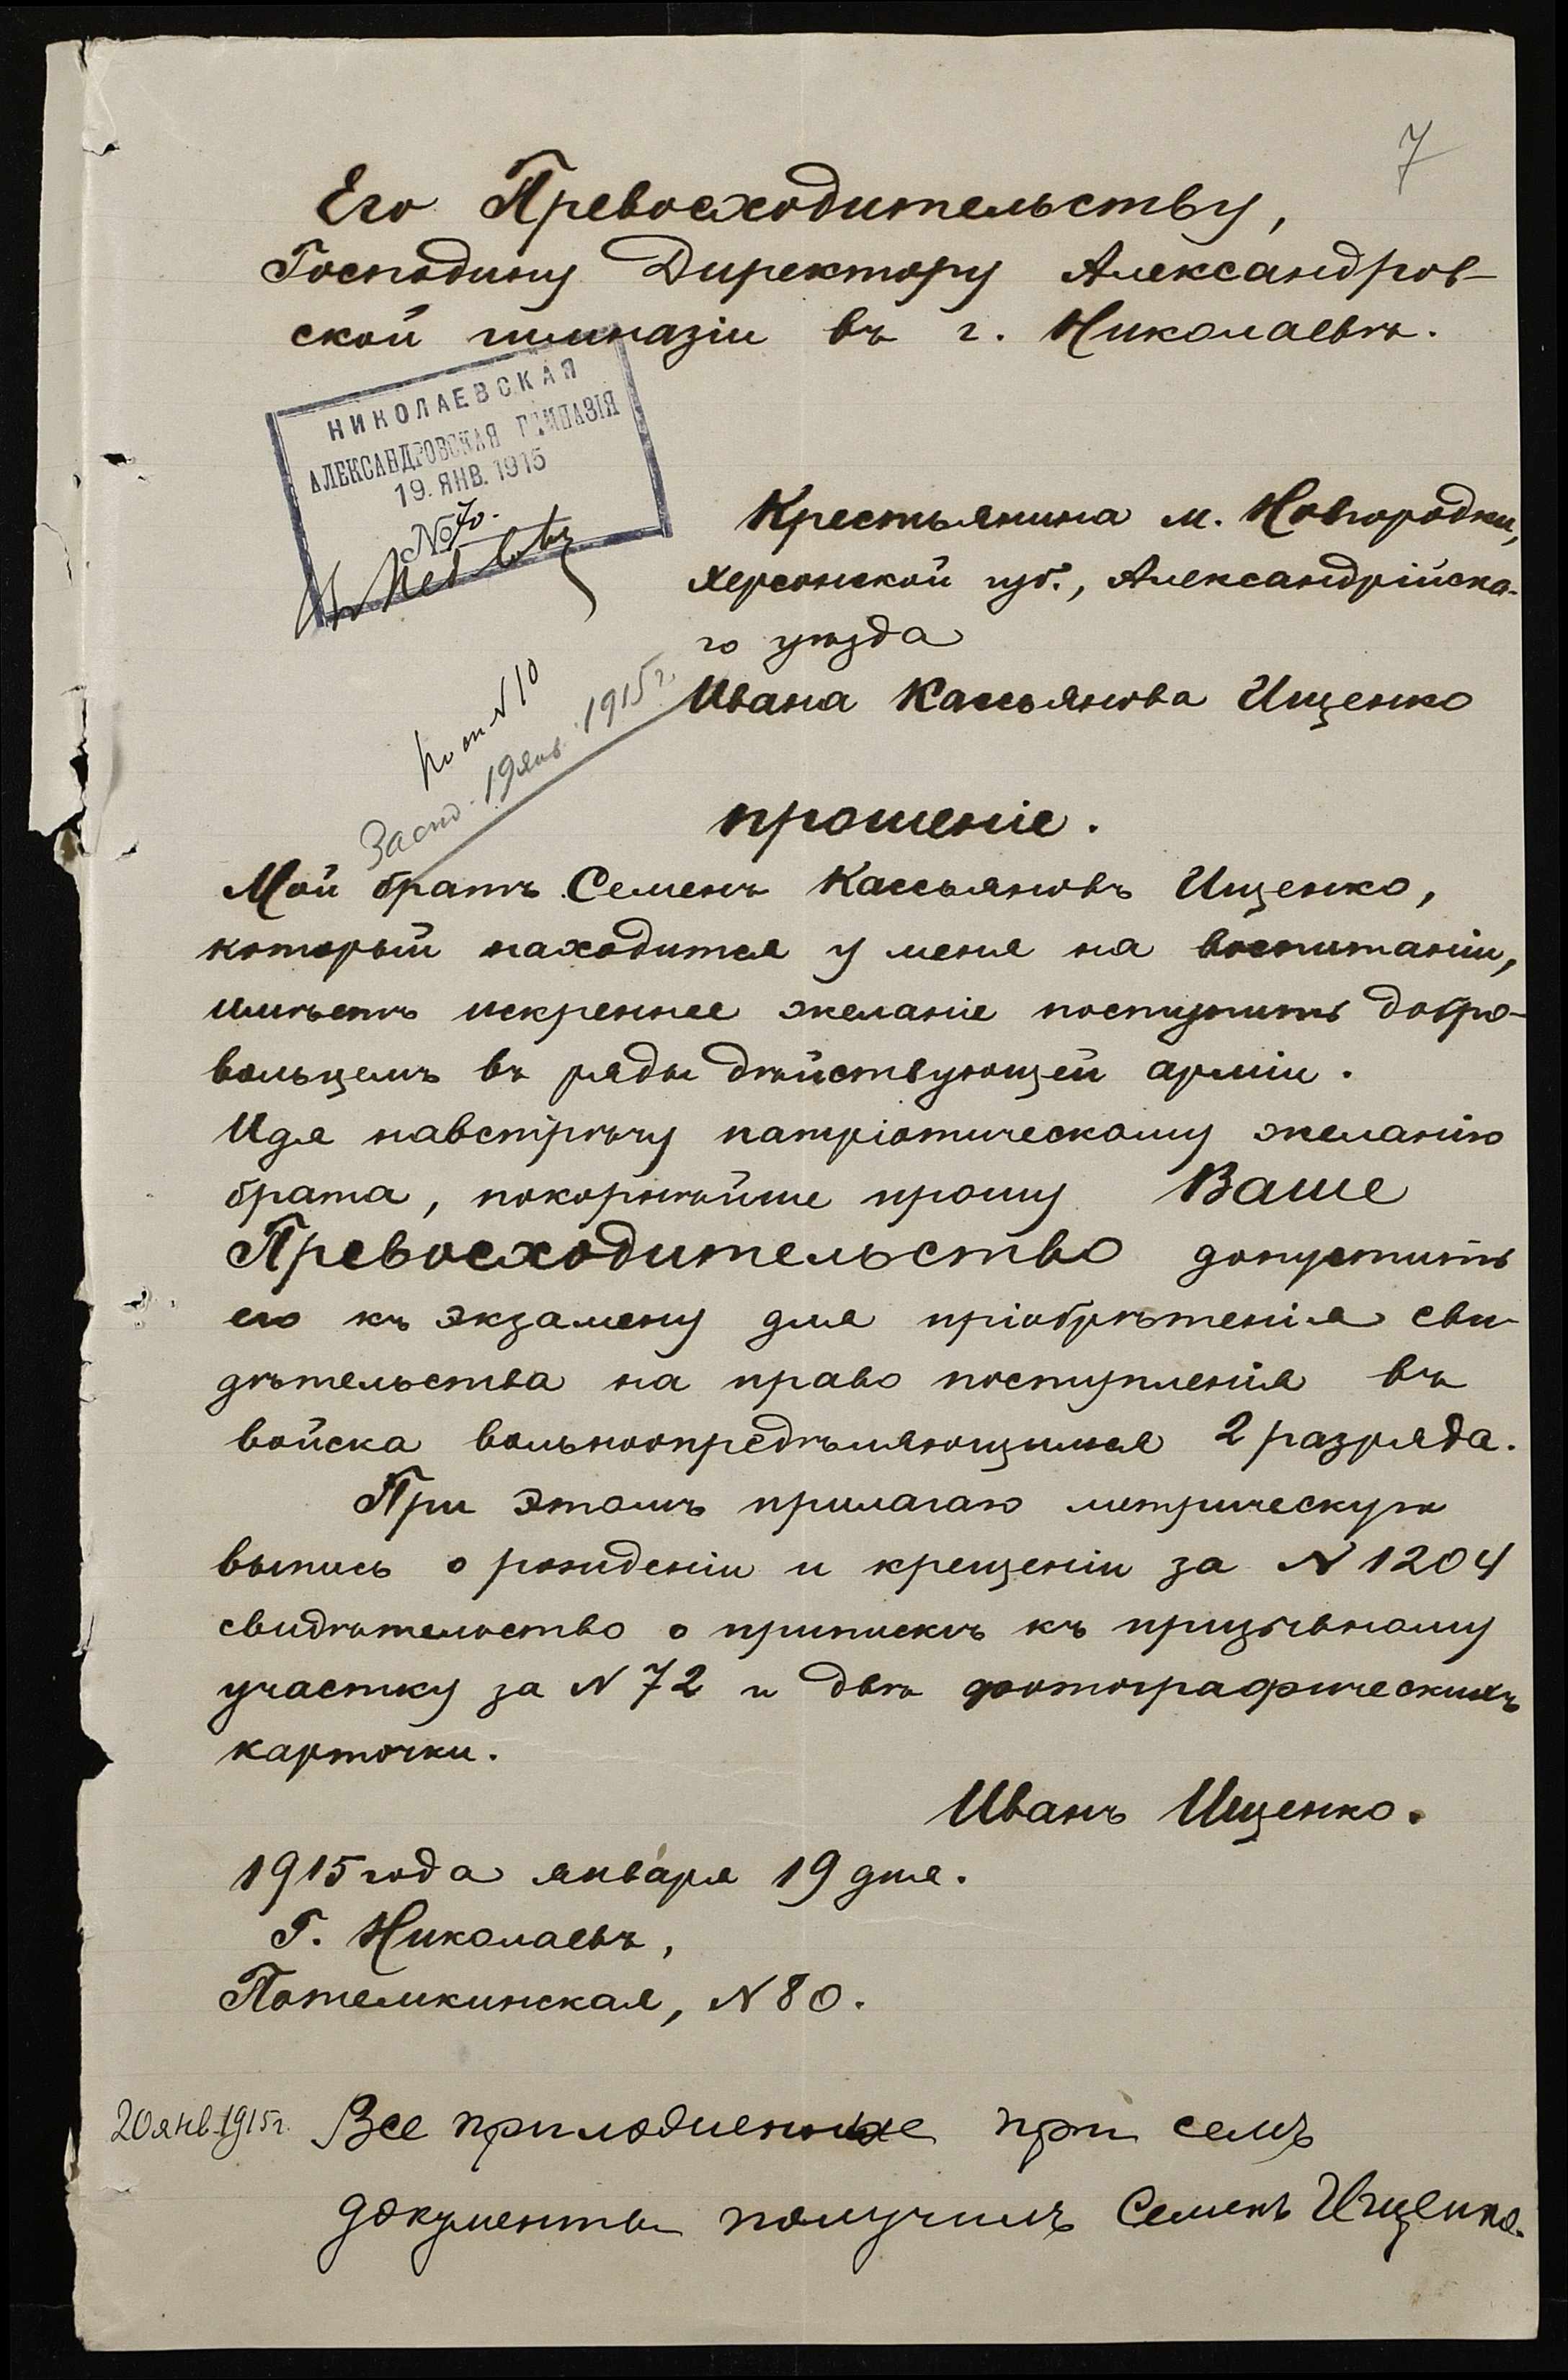 7
Его Превосходительству,
Господину Директору Александров-
ской гимназіи въ г. Николаевѣ.
НИКОЛАЕВСКАЯ
АЛЕКСАНДРОВСКАЯ ГИМНАЗІЯ
19. ЯНВ. 1915
№ 70.
Крестьянина м. Новгородки,
Херсонской губ., Александрійска-
го уѣзда
Ивана Кассьянова Ищенко
19 янв. 1915 г.
прошеніе.
Мой братъ Семенъ Кассьяновъ Ищенко,
который находится у меня на воспитаніи,
имѣетъ искреннее желаніе поступить добро-
вольцемъ въ ряды дѣйствующей арміи.
Идя навстрѣчу патріотическому желанію
брата, покорнѣйше прошу Ваше
Превосходительство допустить
его къ экзамену для пріобрѣтенія сви-
дѣтельства на право поступленія въ
войска вольноопредѣляющимся 2 разряда.
При этомъ прилагаю метрическую
выпись о рожденіи и крещеніи за N 1204
свидѣтельство о припискѣ къ призывному
участку за N 72 и двѣ фотографическихъ
карточки.
Иванъ Ищенко.
1915 года января 19 дня.
Г. Николаевъ,
Потемкинская, N 80.
20 янв. 1915 г. Все приложенные при семъ
документы получилъ Семенъ Ищенко.